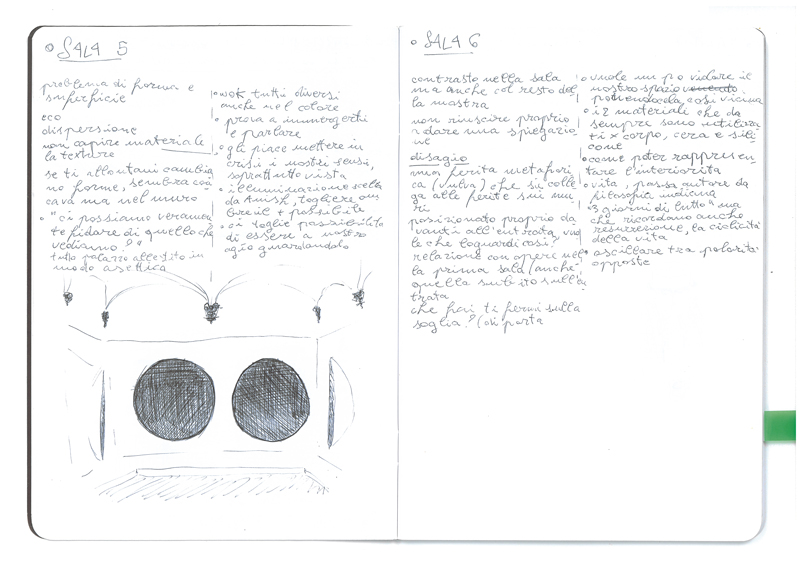 SALA 5
problema di forma e
superficie
eco
dispersione
non capire materiale
la texture
se ti allontani cambia
no forme, sembra con
cava ma nel muro
"ci possiamo veramen
te fidare di quello che
vediamo?"
tutto palazzo allestito in
modo asettico
wok tutti diversi
anche nel colore
prova a immergerti
e parlare
gli piace mettere in
crisi i nostri sensi,
soprattutto vista
illuminazione scelta
da Anish, togliere om
bre il + possibile
ci toglie possibilità
di essere a nostro
agio guardandolo
SALA 6
contrasto nella sala
ma anche col resto del
la mostra
non riuscire proprio
a dare una spiegazio
ne
disagio
una ferita metafori
ca (vulva) che si colle
ga alle ferite sui mu
ri
posizionato proprio da
vanti all'entrata vuo
le che lo guardi così?
relazione con opere nel
la prima sala (anche
quella subito sull'en
trata
che fai ti fermi sulla
soglia? (di porta
vuole un po violare il
nostro spazio
ponendocela così vicina
i 2 materiali che da
sempre sono utilizza
ti x corpo, cera e sili
cone
come poter rappresen
tare l'interiorità
vita, passa autore da
filosofia indiana
"3 giorni di lutto" ma
che ricordano anche
resurrezione, la ciclicità
della vita
oscillare tra polarità
opposte